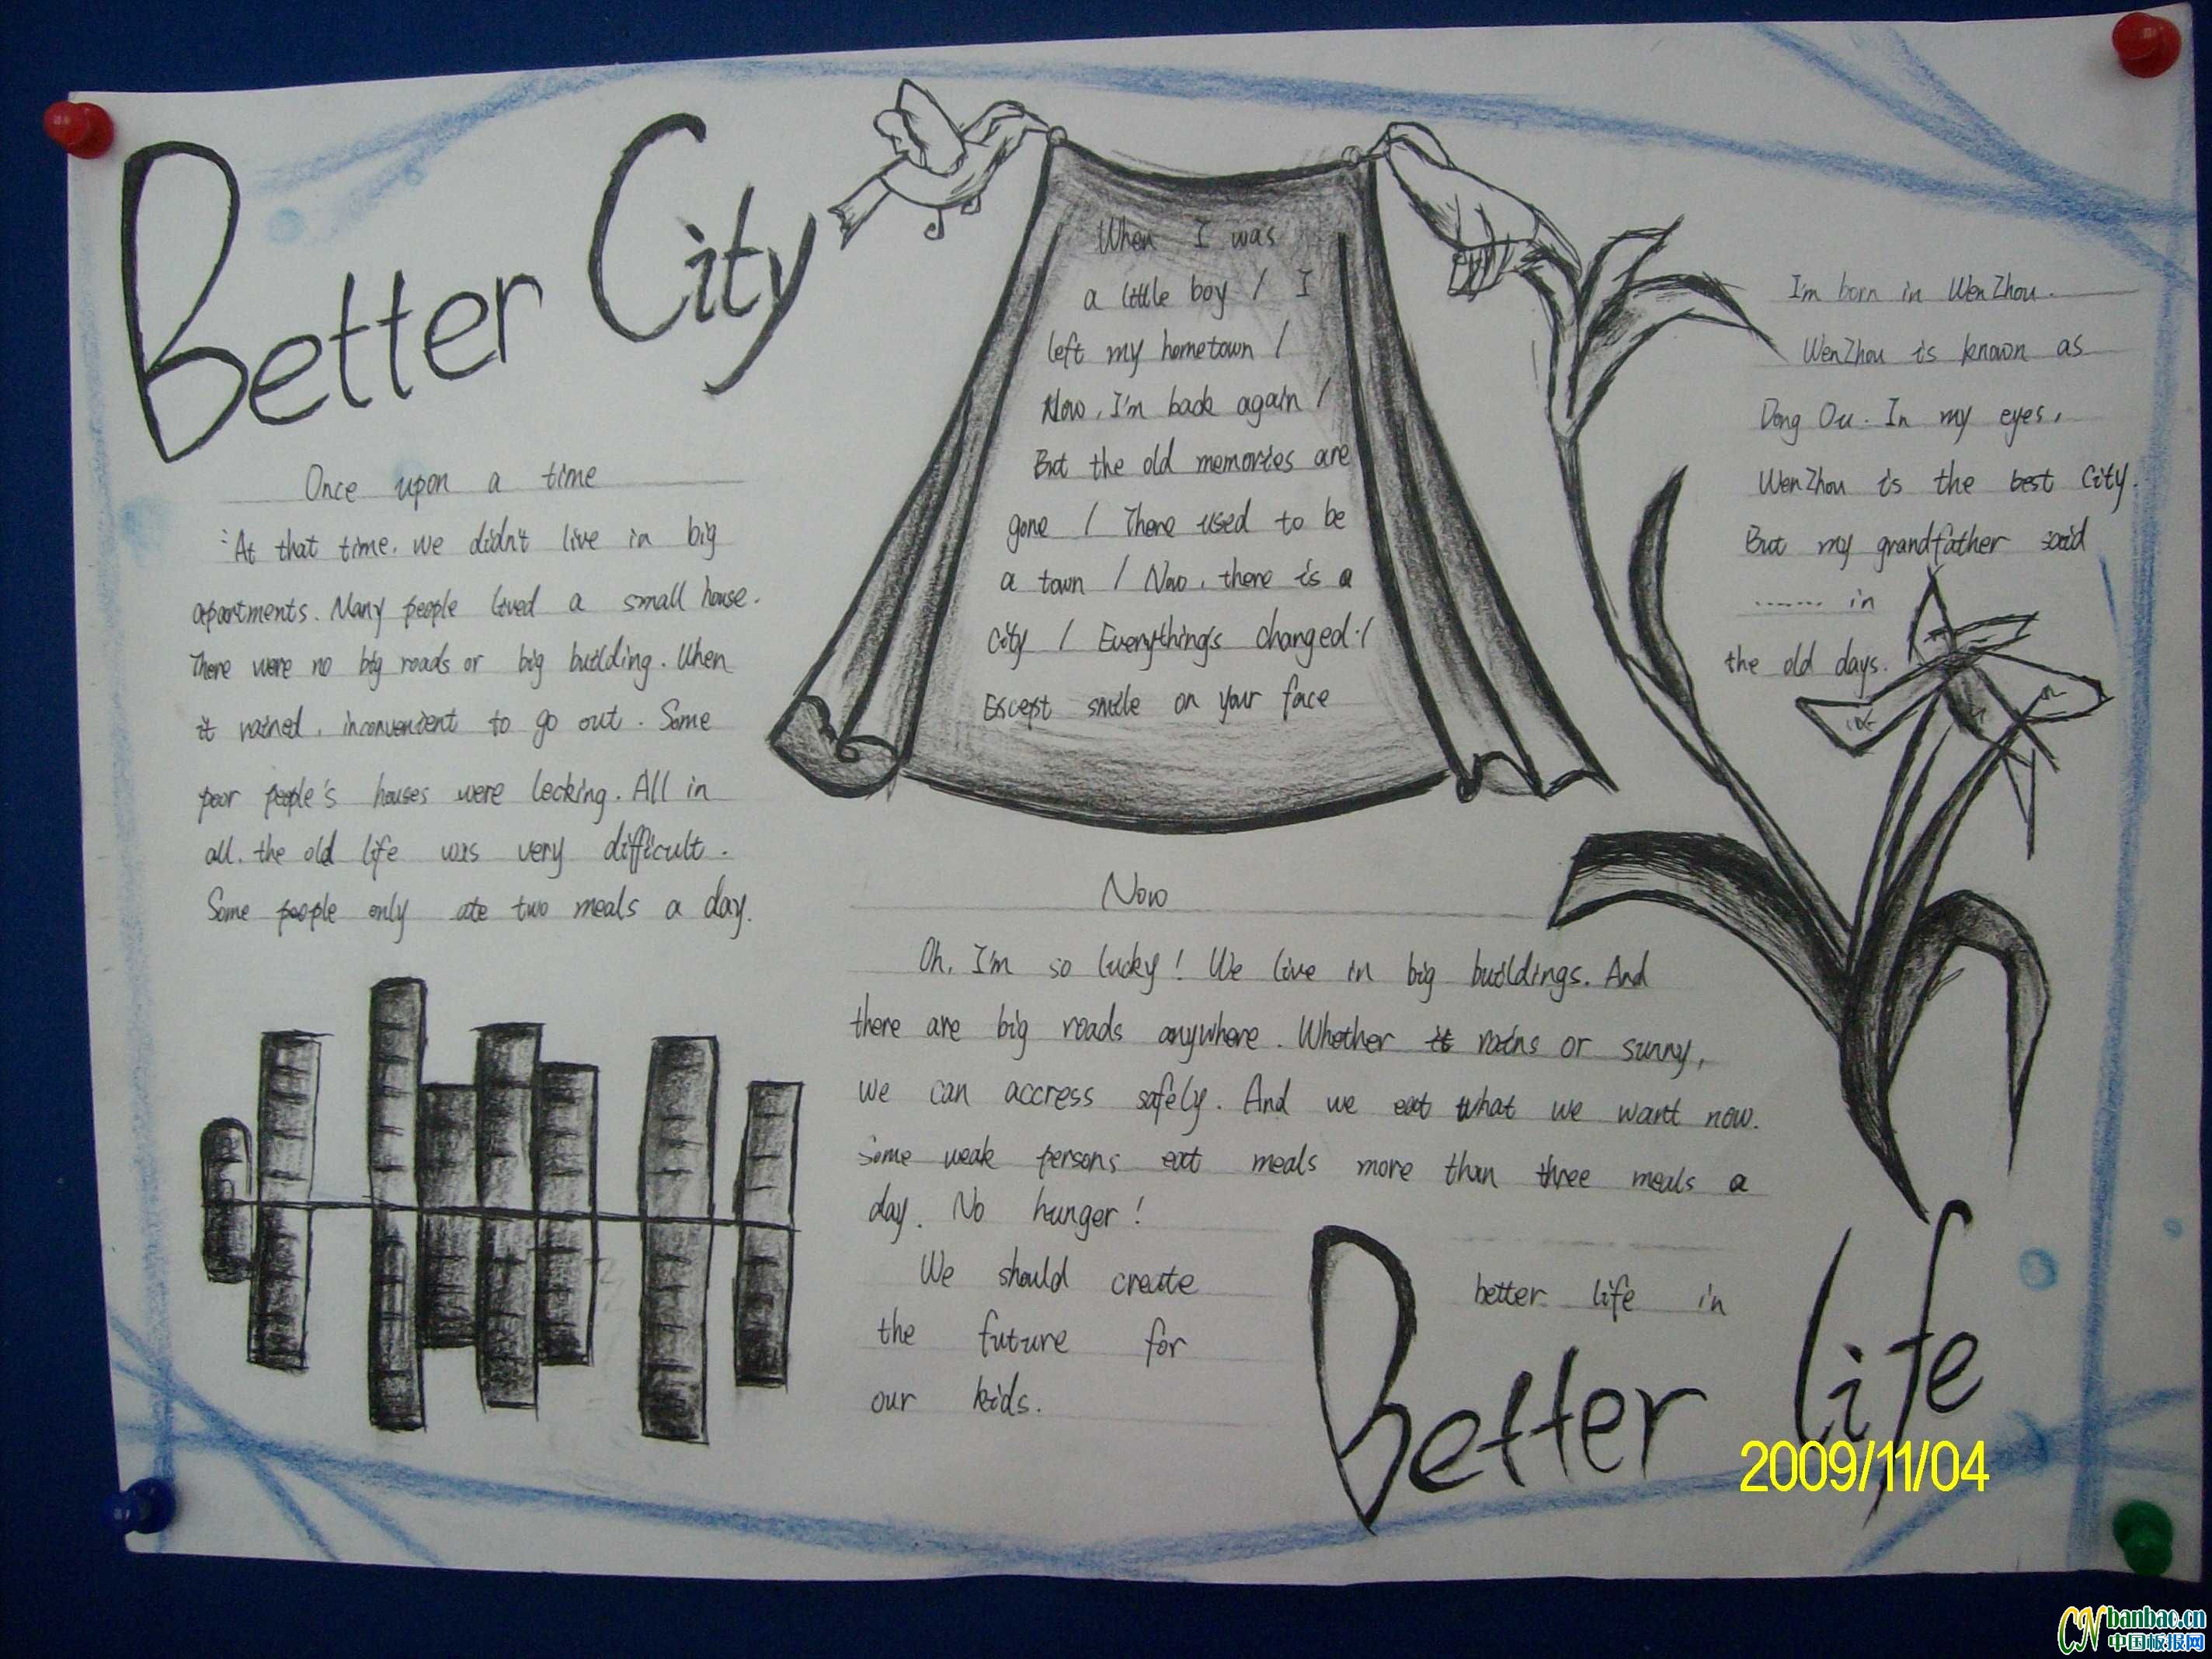 Better City
Once upon a time
At that time, we didn't live in big
apartments. Many people lived a small house.
There were no big roads or big building. When
it rained, inconvenient to go out. Some
poor people's houses were lecking. All in
all, the old life was very difficult.
Some people only ate two meals a day.
When I was
a little boy / I
left my hometown /
Now, I'm back again /
But the old memories are
gone / There used to be
a town / Now, there is a
city / Everything's changed. /
Except smile on your face
I'm born in WenZhou.
WenZhou is known as
Dong Ou. In my eyes,
WenZhou is the best City.
But my grandfather said
....... in
the old days.
Now
Oh, I'm so lucky! We live in big buildings. And
there are big roads anywhere. Whether it rains or sunny,
we can accress safely. And we eat what we want now.
Some weak persons eat meals more than three meals a
day. No hunger!
We should create
the future for
our kids.
better life in
Better life
2009/11/04
CN banbao.cn
中国板报网